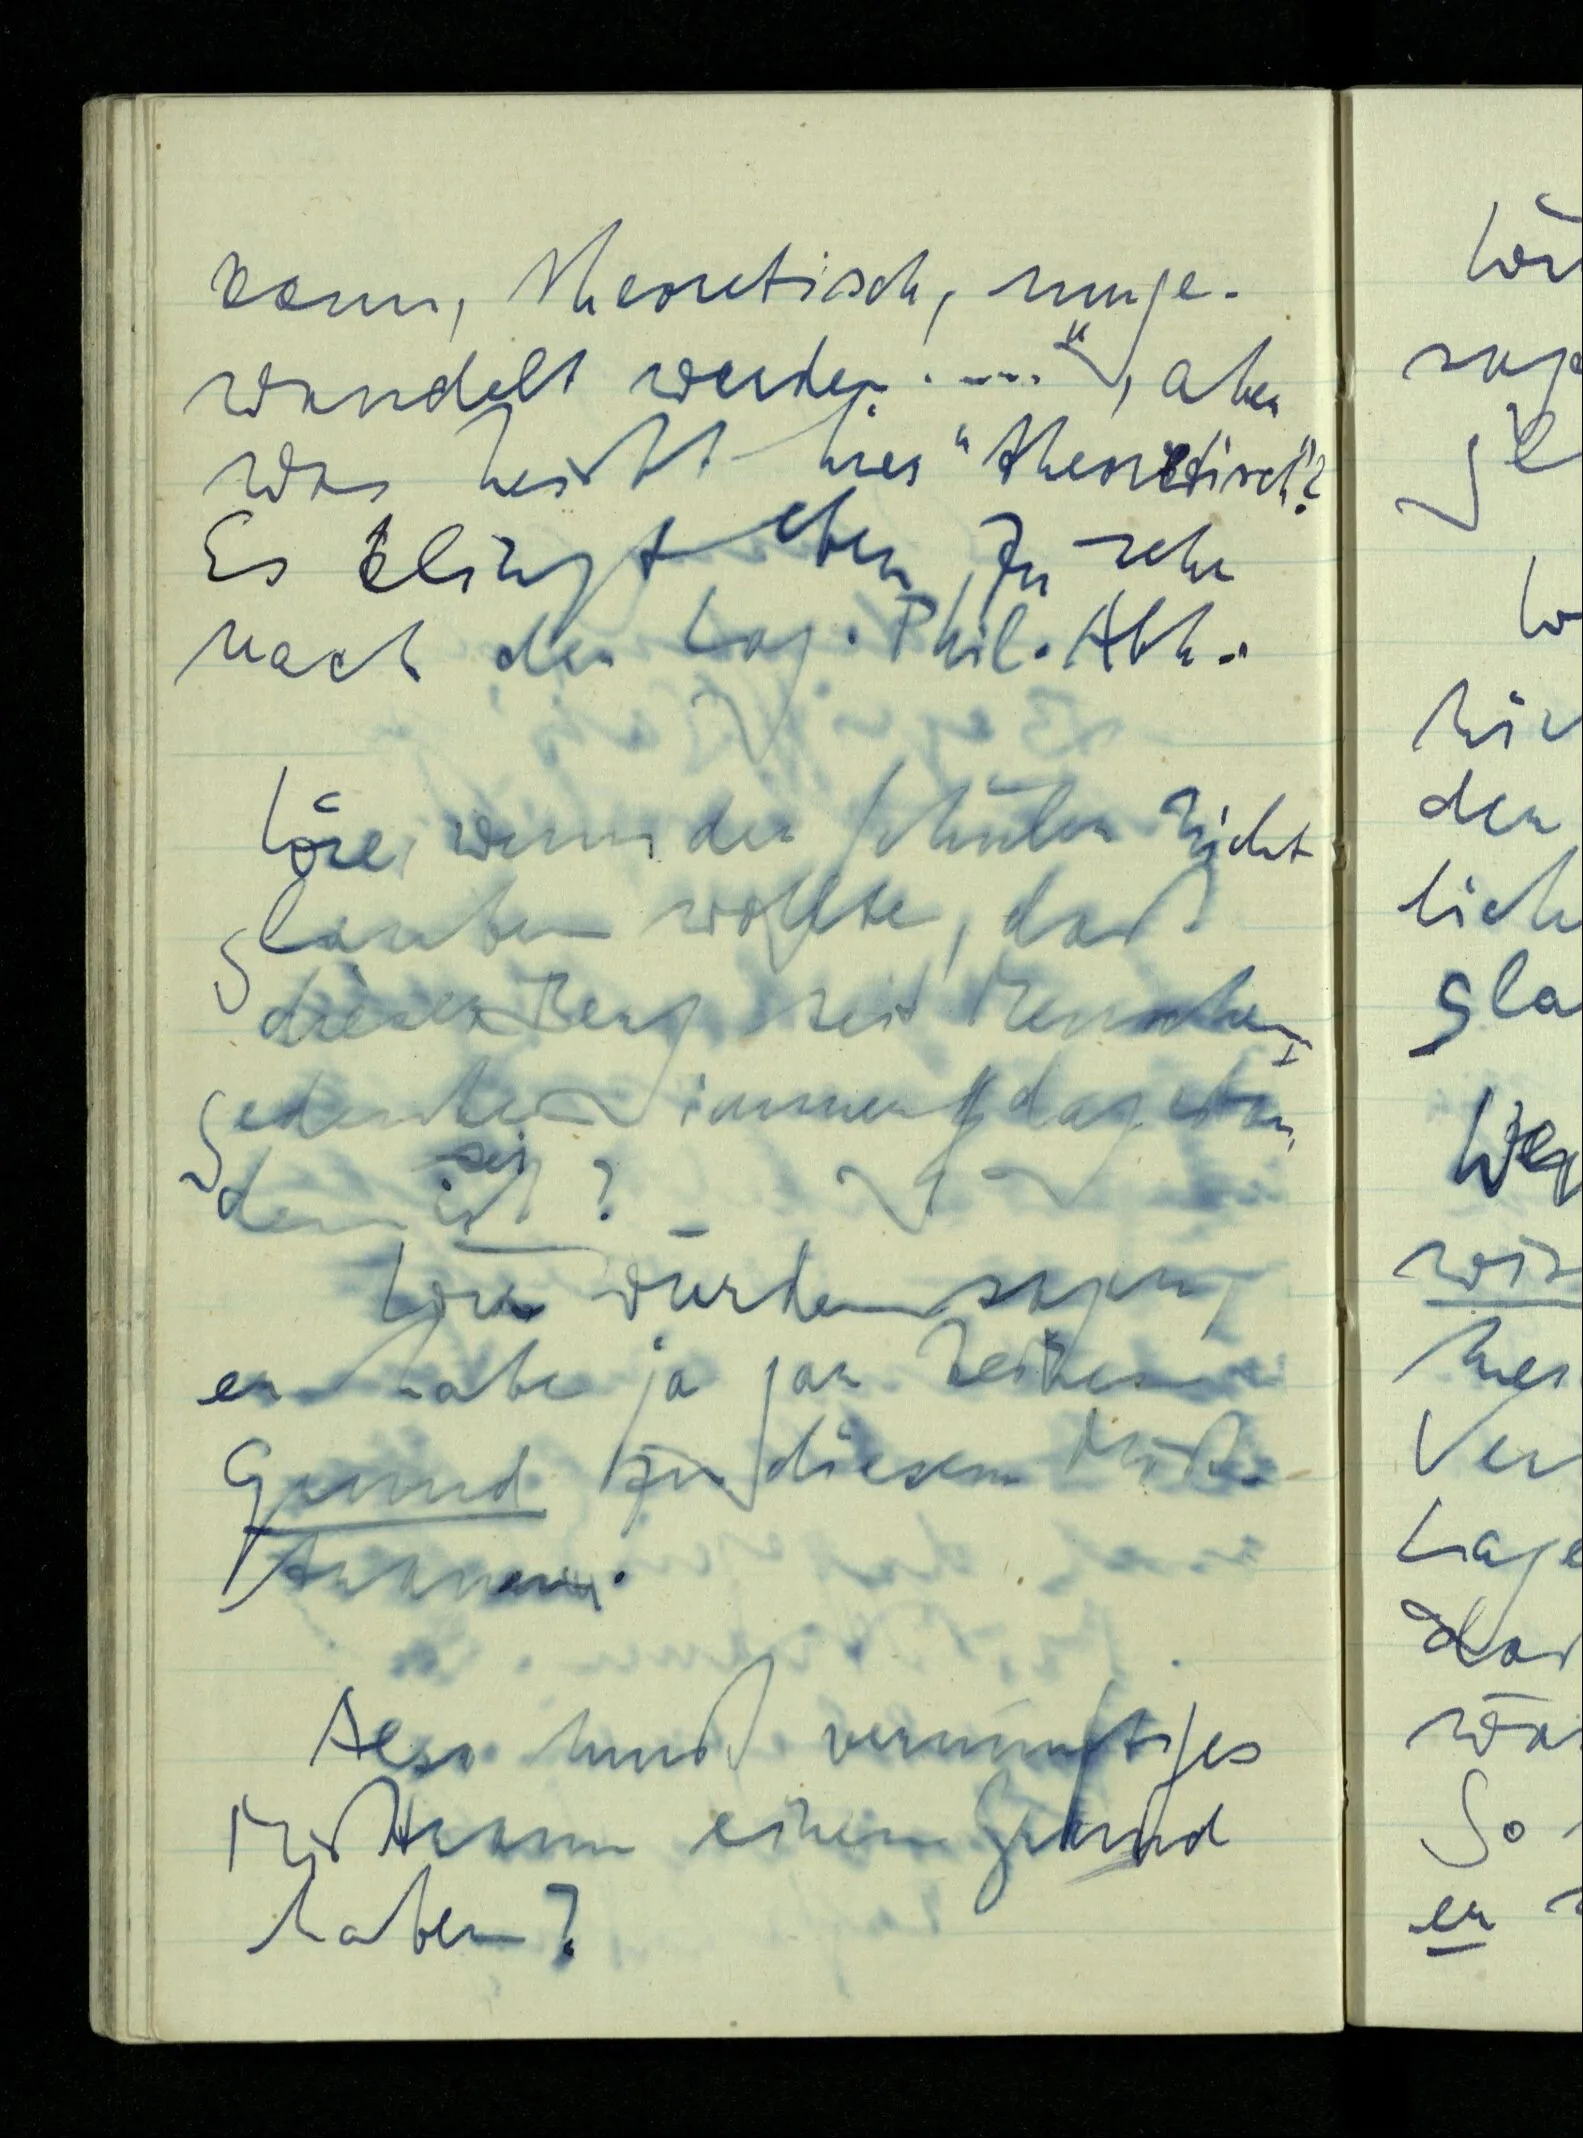 kann, theoretisch, umge-
wandelt werden . ---- “, aber
was heißt hier "theoretisch"?
Es klingt eben zu sehr
nach der Log. Phil. Abh.
Wie, wenn der Schüler nicht
glauben wollte, daß
dieser Berg seit Menschen-
gedenken immer dagestan-
sei
den ist? –
Wir würden sagen,
er habe ja gar keinen
Grund zu diesem Miß-
trauen.
Also muß vernünftiges
Mißtrauen einen Grund
haben?
den
lich
gla
Ver
Lage
So
er